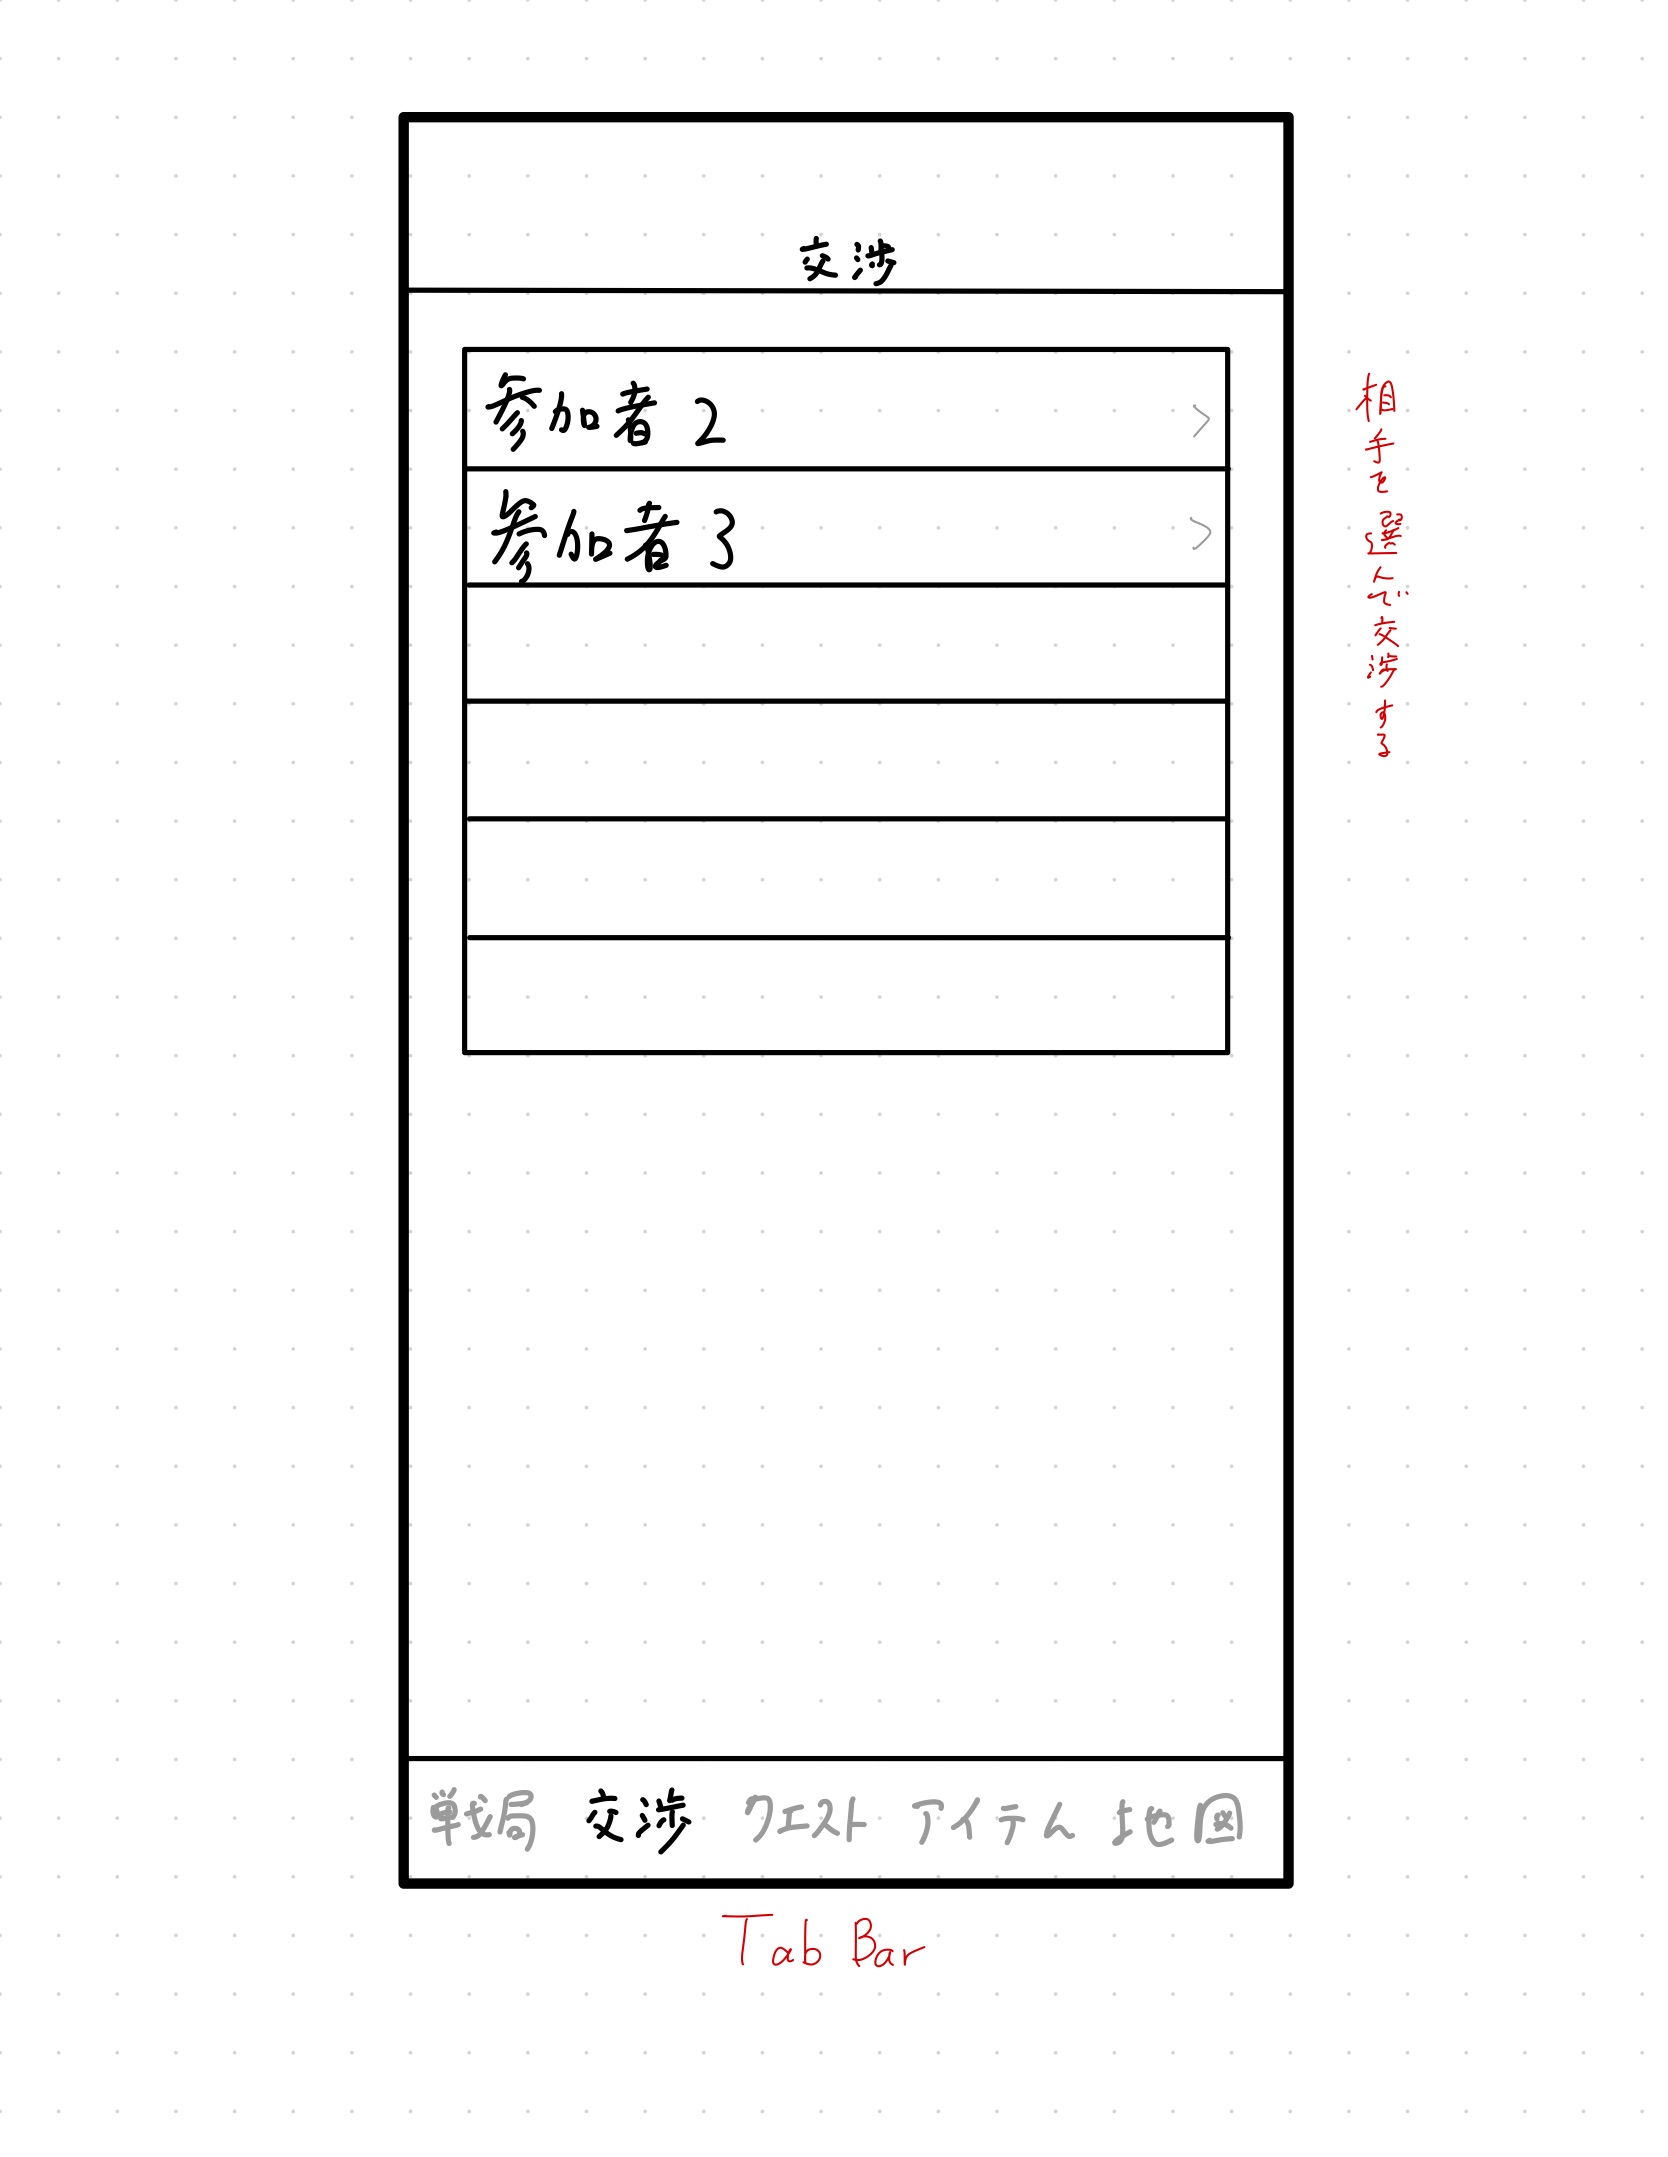 交渉
参加者 2 >
参加者 3 >
相手を選んで交渉する
戦局 交渉 クエスト アイテム 地図
Tab Bar